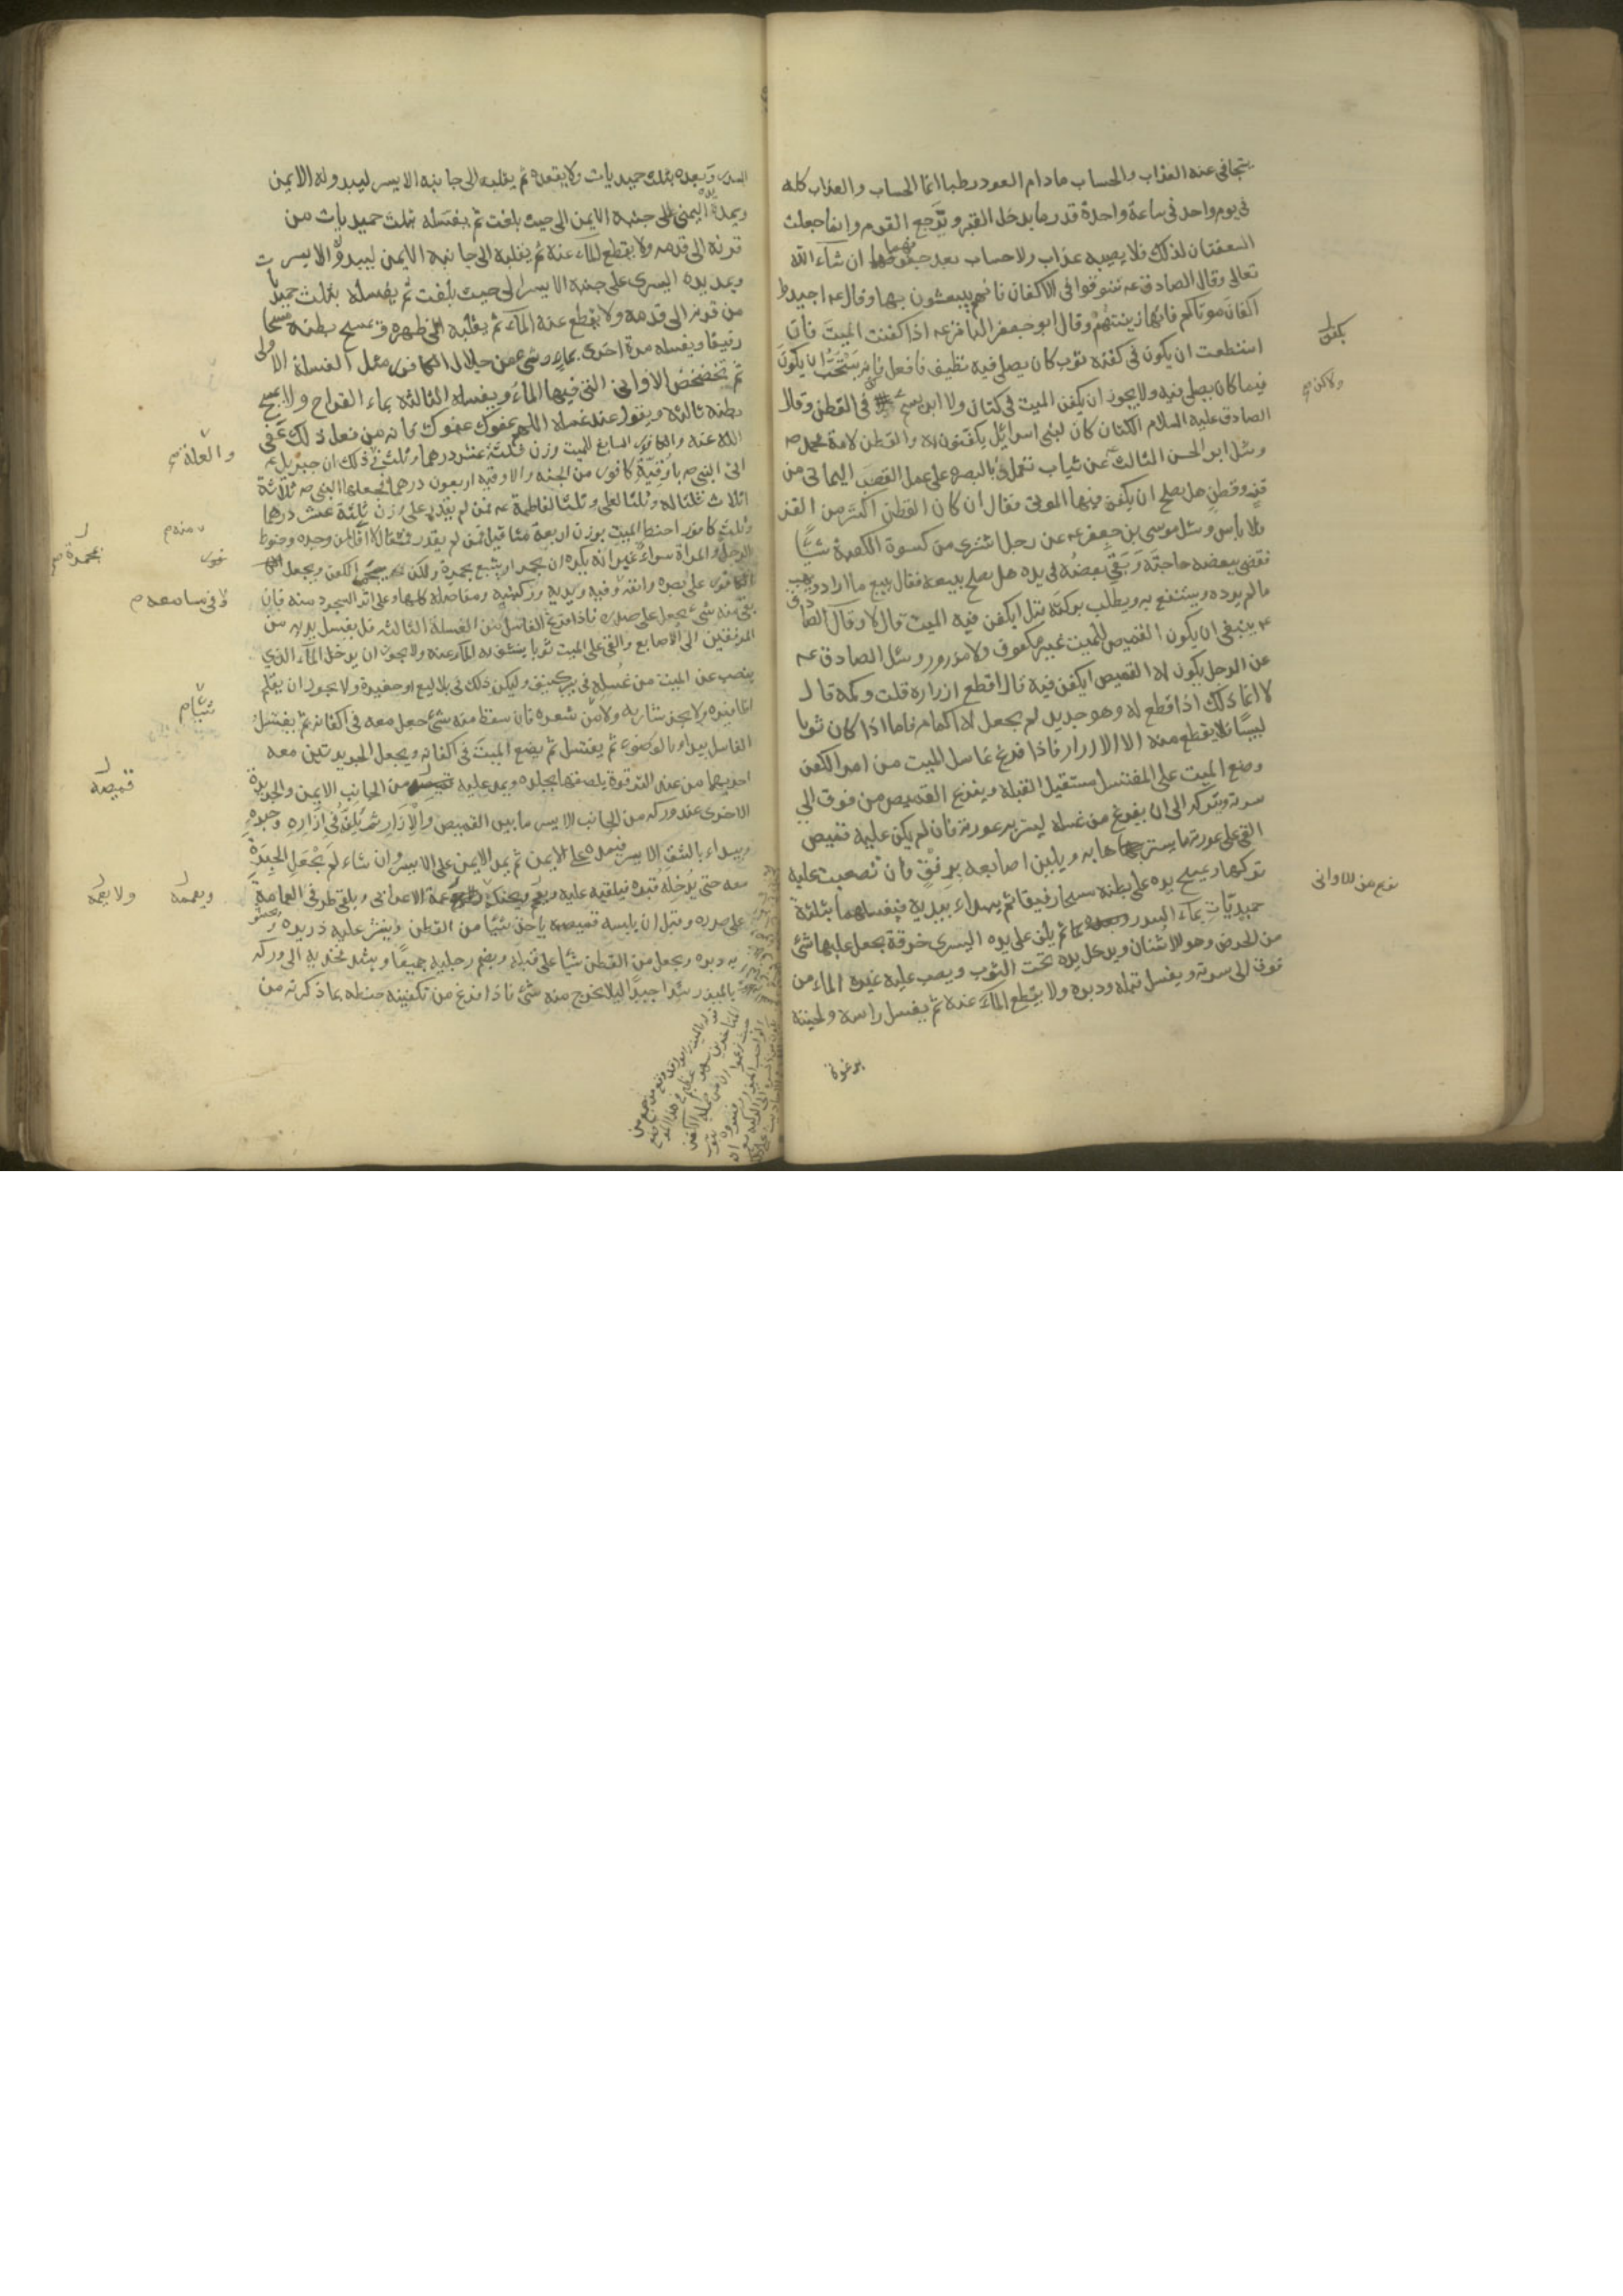 يتجافى عنه العذاب والحساب مادام العود رطبا انما الحساب والعذاب كله
فى يوم واحد فى ساعة واحدة قدر ما يدخل القبر ويرجع القوم وانما جعلت
السعفتان لذلك فلا يصيبه عذاب ولا حساب بعد جفوفهما ان شاء الله
تعالى وقال الصادق عه تنوقوا فى الاكفان فانهم يبعثون بها وقال عه اجيدوا
اكفان موتاكم فانها زينتهم وقال ابو جعفر الباقر عه اذا كفنت الميت فان
استطعت ان يكون فى كفنه ثوب كان يصلى فيه نظيف فافعل فانه يستحب ان يكون
فيما كان يصلى فيه ولا يجوز ان يكفن الميت فى كتان ولا ابريسم فى القطن وقال
الصادق عليه السلام الكتان كان لبنى اسرائيل يكفنون به والقطن لامة محمد صه
وسئل ابو الحسن الثالث عن ثياب تعمل بالبصرة على عمل القصب اليمانى من
قز وقطن هل يصلح ان يكفن فيها الموتى فقال ان كان القطن اكثر من القز
فلا باس وسئل موسى بن جعفر عه عن رجل اشترى من كسوة الكعبة شيئا
فقضى ببعضه حاجته وبقى بعضه فى يده هل يصلح بيعه فقال يبيع ما اراد ويهب
مالم يرده ويستنفع به ويطلب بركته قيل ايكفن فيه الميت قال لا وقال الصادق
عه ينبغى ان يكون القميص للميت غير مكفوف ولا مزرور وسئل الصادق عه
عن الرجل يكون له القميص ايكفن فيه قال اقطع ازراره قلت وكمه قال
لا انما ذلك اذا قطع له وهو جديد لم يجعل له اكمام فاما اذا كان ثوبا
لبيسا فلا يقطع منه الا الازرار فاذا فرغ غاسل الميت من امر الكفن
وضع الميت على المغتسل مستقبل القبلة وينزع القميص من فوق الى
سرته ويتركه الى ان يفرغ من غسله ليستر به عورته فان لم يكن عليه قميص
القى على عورته ما يسترها به ويلين اصابعه برفق فان تصعبت عليه
تركها ويمسح يده على بطنه مسحا رفيقا ثم يبداء بيديه فيغسلهما بثلثة
حميديات بماء السدر ثم يلف على يده اليسرى خرقة يجعل عليها شئ
من الحرض وهو الاشنان ويدخل يده تحت الثوب ويصب عليه غيره الماء من
فوق الى سرته ويغسل قبله ودبره ولا يقطع الماء عنه ثم يغسل راسه ولحيته
برغوة
يكفن
ولاكن
السدر وبعده بثلث حميديات ولا يقعده ثم يقلبه الى جانبه الايسر ليبدو له الايمن
ويمد يده اليمنى على جنبه الايمن الى حيث بلغت ثم يغسله بثلث حميديات من
قرنه الى قدمه ولا يقطع الماء عنه ثم يقلبه الى جانبه الايمن ليبدو الايسر
ويمد يده اليسرى على جنبه الايسر الى حيث بلغت ثم يغسله بثلث حميديات
من قرنه الى قدمه ولا يقطع عنه الماء ثم يقلبه الى ظهره ويمسح بطنه مسحا
رفيقا ويغسله مرة اخرى بماء وشئ من جلال الكافور مثل الغسلة الاولى
ثم تخضخض الاوانى التى فيها الماء ويغسله الثالثه بماء القراح ولا يمسح
بطنه ثالثه ويقول عند غسله اللهم عفوك عفوك فانه من فعل ذلك عفى
الله عنه والكافور السابغ للميت وزن ثلثة عشر درهما وثلث ذلك ان جبريل عه
اتى النبى صه باوقية كافور من الجنه والاوقيه اربعون درهما فجعلها النبى صه ثلاثة
اثلاث ثلثا له وثلثا لعلى وثلثا لفاطمة عه فمن لم يقدر على وزن ثلثة عشر درهما
وثلث كافور احنط الميت بوزن اربعة مثاقيل فمن لم يقدر فمثقال لا اقل لمن وجده وحنوط
الرجل والمراة سواء غير انه يكره ان يجمر او يتبع بجمرة ولكن يجمر الكفن ويجعل
الكافور على بصره وانفه وفيه ويديه وركبتيه ومفاصله كلها وعلى اثر السجود منه فان
بقى منه شئ جعل على صدره فاذا فرغ الغاسل من الغسلة الثالثه فليغسل يديه من
المرفقين الى الاصابع والقى على الميت ثوبا ينشف به الماء عنه ولا يجوز ان يدخل الماء الذى
ينصب عن الميت من غسله فى بئر كنيف وليكن ذلك فى بلاليع او حفيرة ولا يجوز ان يقلم
اظافيره ولا يجز شاربه ولا من شعره فان سقط منه شئ جعل معه فى اكفانه ثم يغتسل
الغاسل يبداء بالوضوء ثم يغتسل ثم يضع الميت فى اكفانه ويجعل الجريدتين معه
احديهما من عند الترقوة يلصقها بجلده ويمد عليه من الجانب الايمن والجريدة
الاخرى عند وركه من الجانب الايسر ما بين القميص والازار ثم يلفه فى ازاره وحبره
ويبداء بالشق الايسر فيمده على الايمن ثم يمد الايمن على الايسر وان شاء لم يجعل الحبرة
معه حتى يدخله قبره فيلقيه عليه ويعممه ويحنكه عمة الاعرابى ويلقى طرفى العمامة
على صدره وقبل ان يلبسه قميصه ياخذ شيئا من القطن وينثر عليه ذريره ويحشو
به دبره ويجعل من القطن شيئا على قبله ويضم رجليه جميعا ويشد فخذيه الى وركه
بالميزر شدا جيدا ليلا يخرج منه شئ فاذا فرغ من تكفينه حنطه بما ذكرته من
والعلة
منه م
بجمرة
قميصه
ويعممه
ولا يعممه